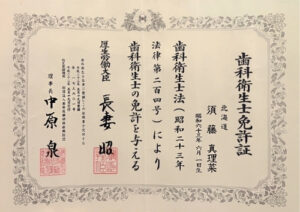 歯科衛生士免許証
北海道
須藤真理菜
昭和六十三年六月一日生
歯科衛生士法(昭和二十三年
法律第二百四号)により
歯科衛生士の免許を与える
厚生労働大臣 長妻昭
理事長 中原泉